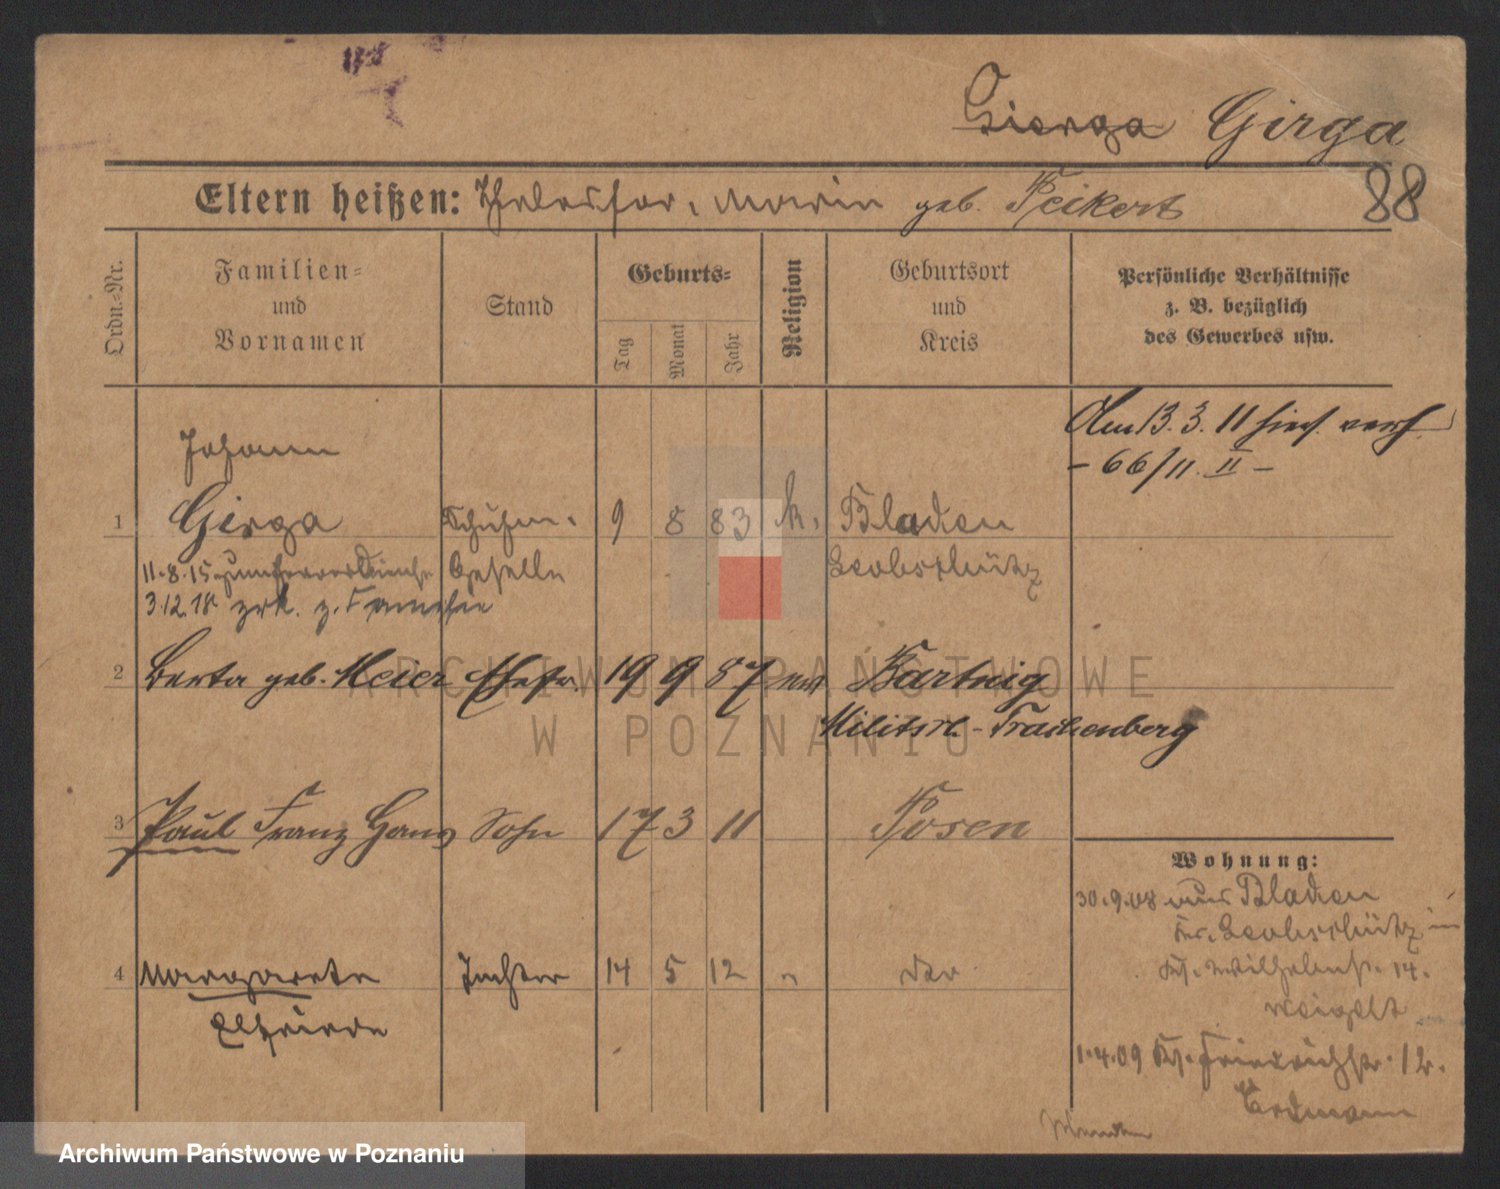 Gierga Girga
88
Eltern heißen: Thelesfor, Maria geb. Peikert
Ordn.-Nr.
Familien- und Vornamen
Stand
Geburts-
Tag
Monat
Jahr
Religion
Geburtsort und Kreis
Persönliche Verhältnisse z. B. bezüglich des Gewerbes usw.
Am 13.3.11 hier verh.
- 66/11. II -
Johann
1 Girga Schuhm. 9 8 83 k. Bladen
11.8.15 zum Geselle Leobschütz
3.12.18 zrk. z. Familie
2 Berta geb. Meier Ehefr. 19 9 87 Bartnig
Militsch-Trachenberg
3 Paul Franz Hans Sohn 17 3 11 Posen
Wohnung:
30.9.08 aus Bladen
Kr. Leobschütz in
4 Margarete Tochter 14 5 12 " Wilhelmstr. 14.
Elfriede
Weigelt
1.4.09 Friedrichstr. 12.
Erdmann
ARCHIWUM PAŃSTWOWE
W POZNANIU
Archiwum Państwowe w Poznaniu